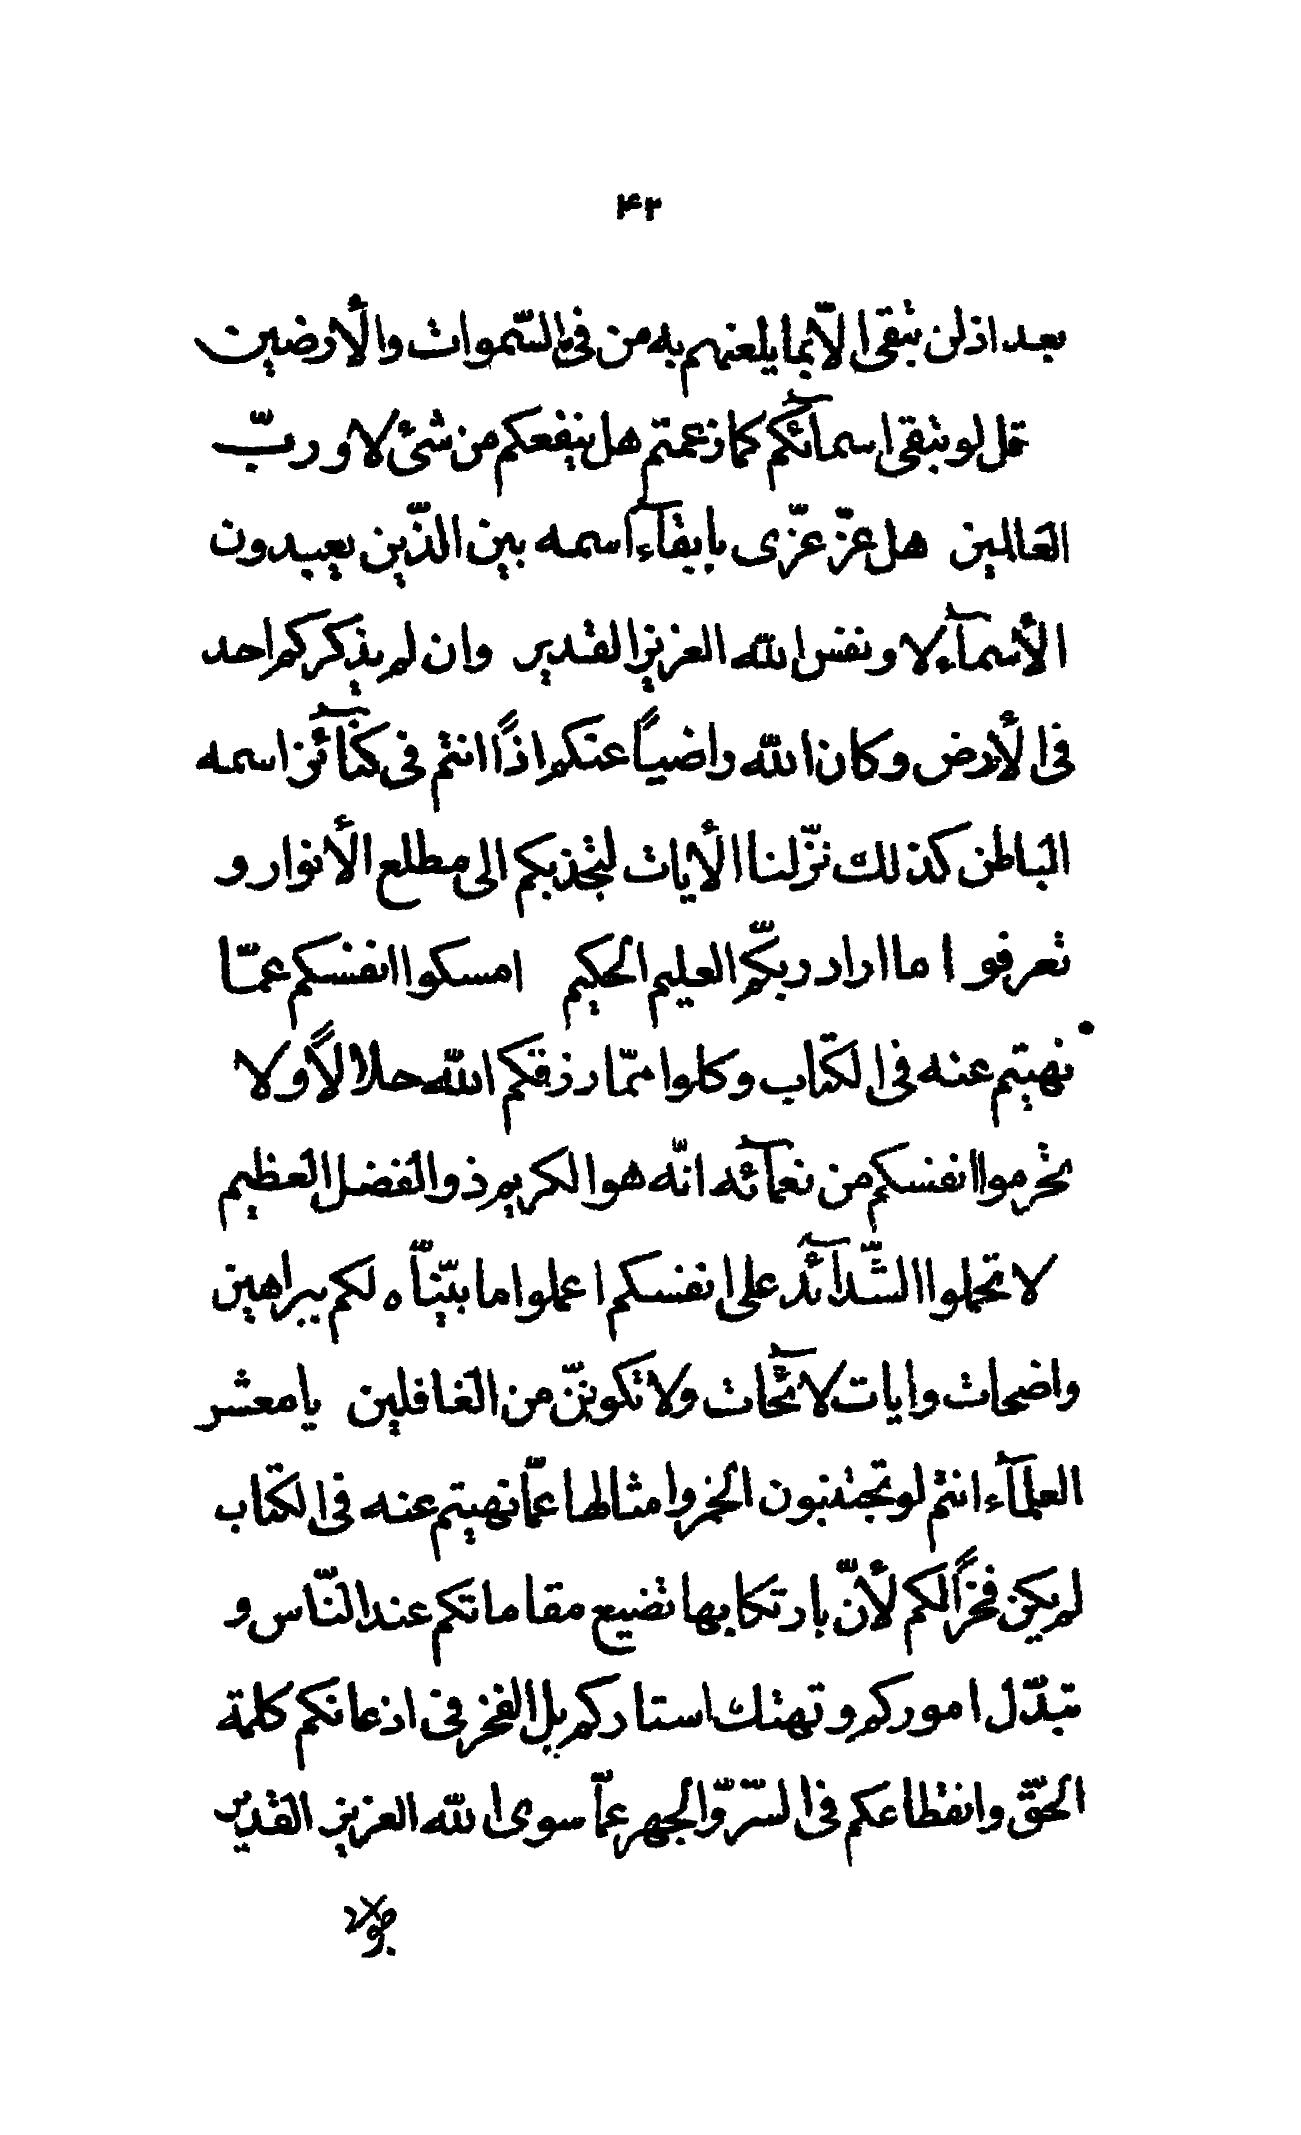 ۴۲
بعد اذ لن تبقی الّا بما یلعنهم به من فی السّموات والأرضین
قل لو تبقی اسمآئکم کما زعمتم هل ینفعکم من شئ لا و ربّ
العالمین هل عزّ عزّی بابقآء اسمه بین الّذین یعبدون
الأسمآء لا و نفس الله العزیز القدیر و ان لم یذکرکم احد
فی الأرض و کان الله راضیاً عنکم اذاً انتم فی کنآئز اسمه
الباطن کذلک نزّلنا الأیات لتجذبکم الی مطلع الأنوار و
تعرفوا ما اراد ربّکم العلیم الحکیم امسکوا انفسکم عمّا
نهیتم عنه فی الکتاب و کلوا ممّا رزقکم الله حلالاً و لا
تحرموا انفسکم من نعمآئه انّه هو الکریم ذو الفضل العظیم
لا تحملوا الشّدآئد علی انفسکم اعملوا ما بیّنّاه لکم ببراهین
واضحات و ایات لآئحات و لا تکوننّ من الغافلین یا معشر
العلمآء انتم لو تجتنبون الخمر و امثالها عمّا نهیتم عنه فی الکتاب
لم یکن فخراً لکم لأنّ بارتکابها تضیع مقاماتکم عند النّاس و
تبدّل امورکم و تهتک استارکم بل الفخر فی اذعانکم کلمة
الحقّ و انقطاعکم فی السّرّ و الجهر عمّا سوی الله العزیز القدیر